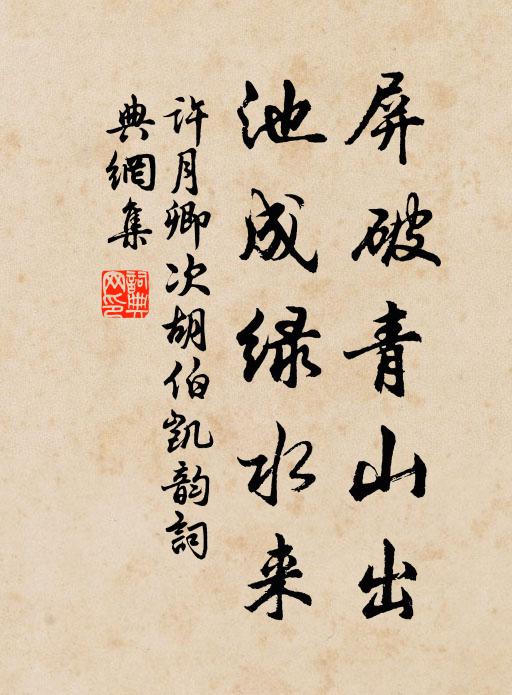 屏破青山出
池成绿水来
许月卿次胡伯凯韵词
典網集
詞典
网印